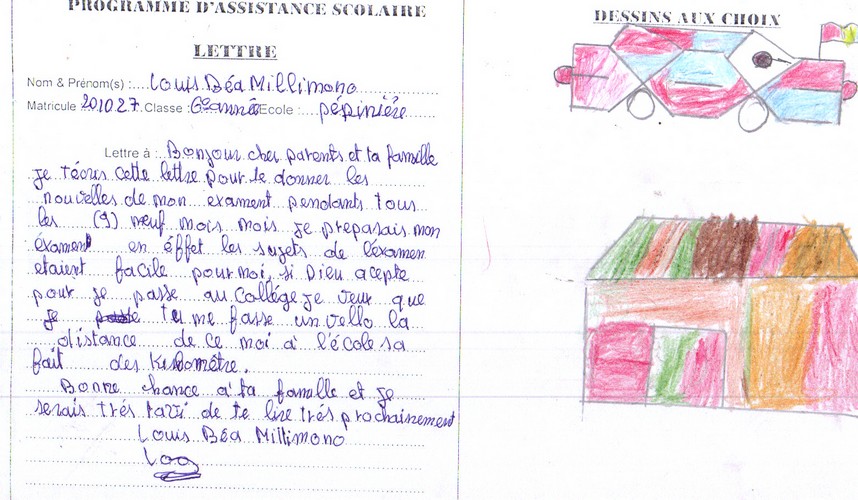 PROGRAMME D'ASSISTANCE SCOLAIRE
LETTRE
Nom & Prénom(s) : Louis Béa Millimono
Matricule 201027 Classe : 6è année Ecole : pépinière
Lettre à : Bonjour cher parents et ta famille
je técris cette lettre pour te donner les
nouvelles de mon exament pendants tous
les (9) neuf mois mois je preparais mon
éxament en éffet les sujets de l'éxamen
etaient facile pour moi, si Dieu acepte
pour je passe au Collége je veux que
je tu me fasse un vello la
distance de ce moi à l'école sa
fait des Kilométre.
Bonne chance à ta famille et je
serais trés ravi de te lire trés prochainement
Louis Béa Millimono
DESSINS AUX CHOIX